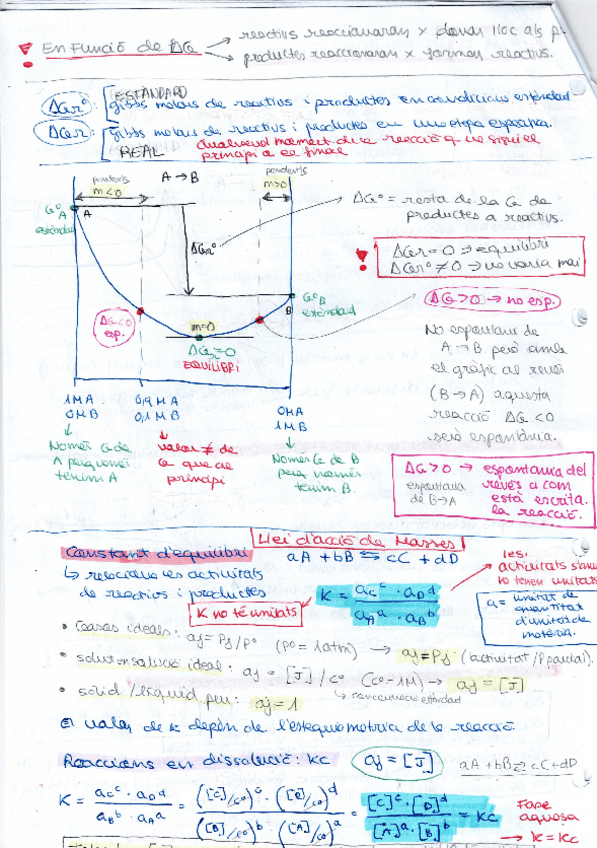 ! En Funció de ΔG → reactius reaccionaran x donar lloc als p.
→ productes reaccionaran x formar reactius.
ESTÀNDARD
ΔGr°: gibbs molars de reactius i productes en condicions estàndard
ΔGr: gibbs molars de reactius i productes en una etapa específica.
REAL
Qualsevol moment de la reacció q no sigui el
principi o el final
pendents
m<0
A → B
pendents
m>0
G°A
estàndard
A
ΔGr°
ΔG° = resta de la G de
productes a reactius.
! ΔGr=0 ⇒ equilibri
ΔGr°≠0 ⇒ no varia mai
G°B
estàndard
B
ΔG<0
esp.
m=0
ΔGr=0
EQUILIBRI
ΔG>0 → no esp.
No espontani de
A → B però amb
el gràfic al revés
(B→A) aquesta
reacció ΔG<0
serà espontània.
1MA
0MB
0,9MA
0,1MB
0MA
1MB
Només G de
A perquè només
tenim A
valor ≠ de
G que al
principi
Només G de B
perq només
tenim B.
ΔG>0 → espontània del
revés a com
està escrita
la reacció.
espontània
de B→A
Llei d'acció de Masses
Constant d'equilibri
aA + bB ⇆ cC + dD
↳ relaciona les activitats
de reactius i productes
K = aC^c · aD^d / aA^a · aB^b
les
activitats
no tenen unitats
K no té unitats
a = unitat de
quantitat
d'unitat de
matèria.
• Gasos ideals: aj = Pj/P° (P°=1atm) → aj=Pj (activitat/P parcial).
• solut en solució ideal: aj = [J]/c° (c°=1M) → aj = [J]
↳ concentració estàndard
• sòlid / líquid pur: aj = 1
El valor de K depèn de l'estequiometria de la reacció.
Reaccions en dissolució: Kc
aj = [J]
aA + bB ⇄ cC + dD
K = aC^c · aD^d / aB^b · aA^a = ([C]/c°)^c · ([D]/c°)^d / ([B]/c°)^b · ([A]/c°)^a = [C]^c · [D]^d / [A]^a · [B]^b = Kc
Fase
aquosa
→ K = Kc